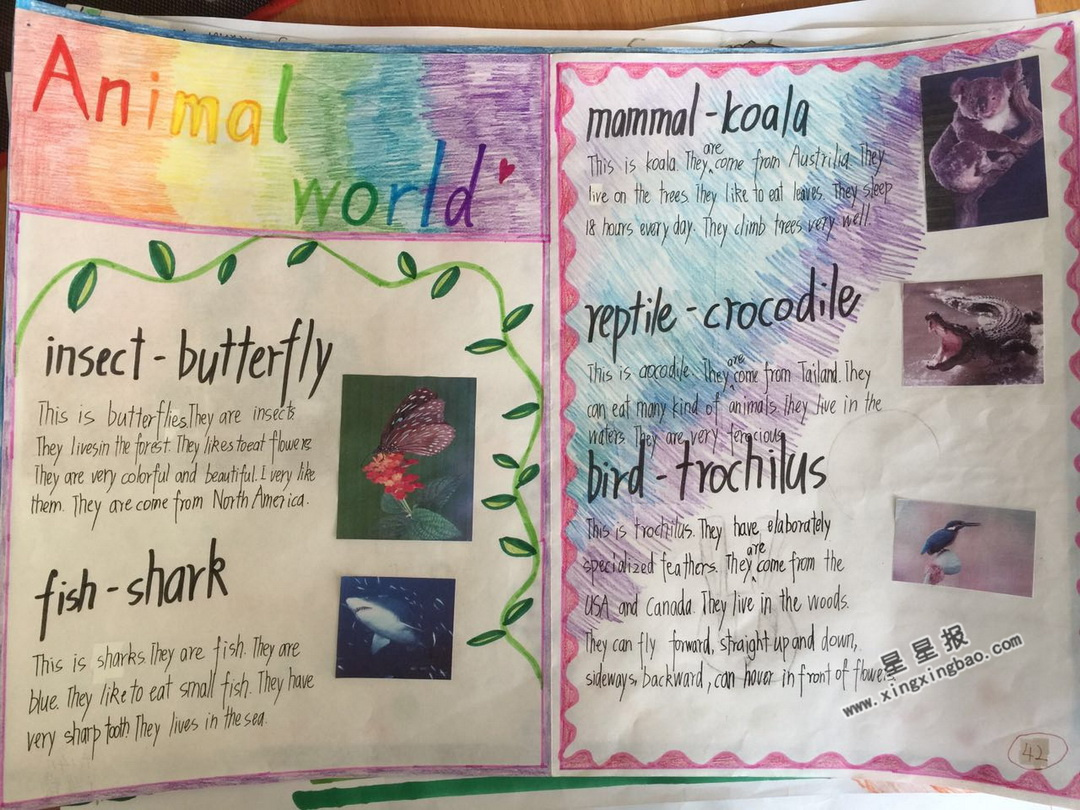 Animal
world
insect-butterfly
This is butterflies.They are insects
They lives in the forest. They likes to eat flowers
They are very colorful and beautiful. I very like
them. They are come from North America.
fish-shark
This is sharks They are fish. They are
blue. They like to eat small fish. They have
very sharp tooth. They lives in the sea.
mammal-koala
This is koala. They are come from Austrilia. They
live on the trees. They like to eat leaves. They sleep
18 hours every day. They climb trees very well.
reptile-crocodile
This is crocodile. They are come from Tailand. They
can eat many kind of animals. They live in the
waters. They are very ferocious.
bird-trochilus
This is trochilus. They have elaborately
specialized feathers. They are come from the
USA and Canada. They live in the woods.
They can fly forward, straight up and down,
sideways, backward, can hover in front of flower.
星星报
www.xingxingbao.com
42